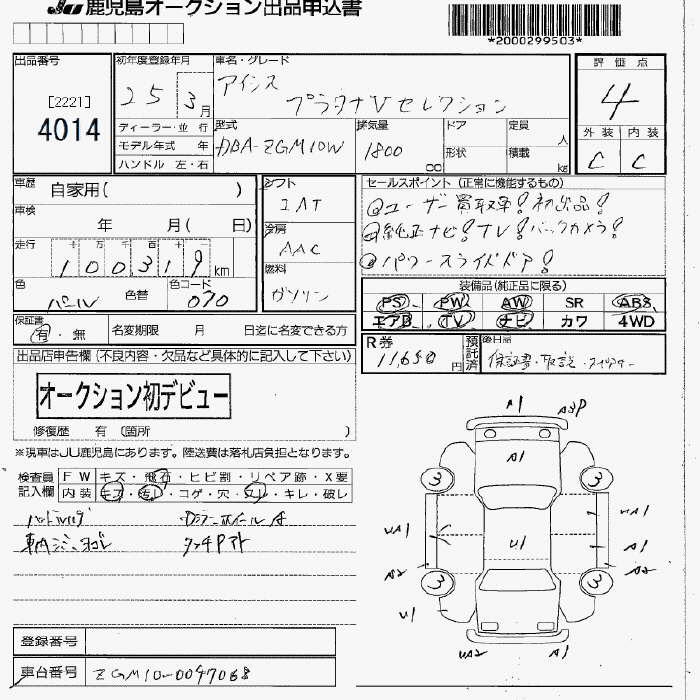 JU 鹿児島オークション出品申込書
*2000299503*
出品番号
[2221]
4014
初年度登録年月
25 3月
車名・グレード
アイシス
プラタナVセレクション
評価点
4
外装 内装
C C
ディーラー・並行
モデル年式 年
ハンドル 左・右
型式
DBA-ZGM10W
排気量
1800
cc
ドア
形状
定員
人
積載
kg
車歴 自家用( )
車検
年 月( 日)
走行 十 万 千 百 十 一
100319 km
色
パール
色替
色コード
070
シフト
IAT
冷房
AAC
燃料
ガソリン
セールスポイント (正常に機能するもの)
ユーザー買取車! 初出品!
純正ナビ! TV! バックカメラ!
パワースライドドア!
装備品(純正品に限る)
PS PW AW SR ABS
エアB TV ナビ カワ 4WD
保証書
有・無
名変期限 月 日迄に名変できる方
R券
11,650円
預託済
後日品
保証書・取説・スペアキー
出品店申告欄(不良内容・欠品など具体的に記入して下さい)
オークション初デビュー
修復歴 有 (箇所 )
※現車はJU鹿児島にあります。陸送費は落札店負担となります。
検査員記入欄
FW キズ・飛石・ヒビ割・リペア跡・X要
内装 キズ・汚レ・コゲ・穴・スレ・キレ・破レ
A1
A1
3 3
UA1 U1 UA1
A2 A1
A2
3 3
U1
UA2 A1
登録番号
車台番号 ZGM10-0047068